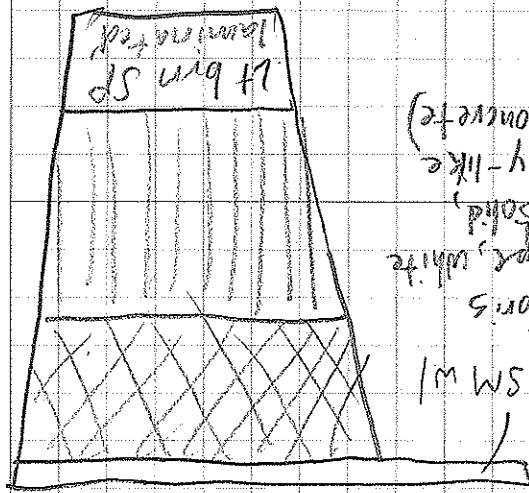 SM w/
white
solid,
y-like
oncrete)
Lt brn SP
laminated